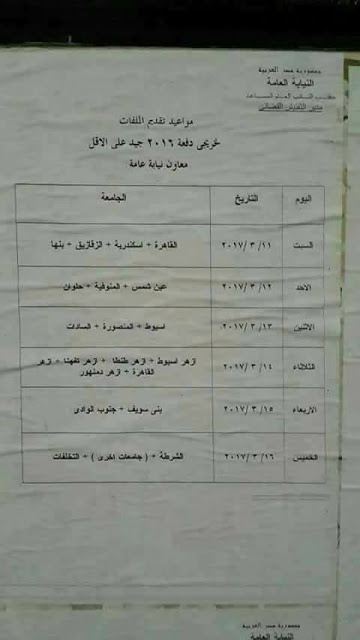 جمهورية مصر العربية
النيابة العامة
مكتب النائب العام المساعد
مدير التفتيش القضائى
مواعيد تقديم الملفات
لخريجى دفعة ٢٠١٦ جيد على الاقل
معاون نيابة عامة
اليوم التاريخ الجامعة
السبت ٢٠١٧/ ٣ /١١ القاهرة + اسكندرية + الزقازيق + بنها
الاحد ٢٠١٧/ ٣ /١٢ عين شمس + المنوفية + حلوان
الاثنين ٢٠١٧/ ٣ /١٣ اسيوط + المنصورة + السادات
الثلاثاء ٢٠١٧/ ٣ /١٤ ازهر اسيوط + ازهر طنطا + ازهر تفهنا + ازهر
القاهرة + ازهر دمنهور
الاربعاء ٢٠١٧/ ٣ /١٥ بنى سويف + جنوب الوادى
الخميس ٢٠١٧/ ٣ /١٦ الشرطة + ( جامعات اخرى ) + التخلفات
جمهورية مصر العربية
النيابة العامة